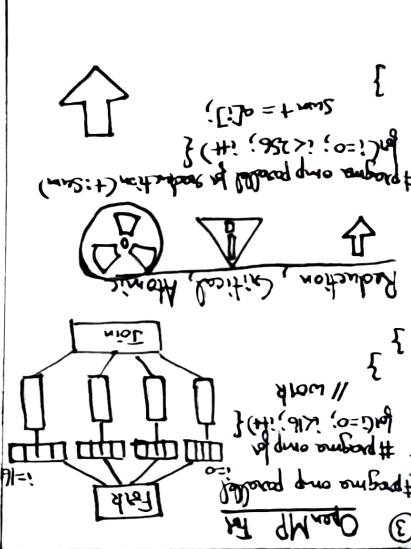 ③ OpenMP For
#pragma omp parallel
{
#pragma omp for
for(i=0; i<16; i++){
// work
}
}
Fork
i=0
i=16
Join
Reduction, Critical, Atomic
#pragma omp parallel for reduction(+:sum)
for(i=0; i<256; i++){
sum += a[i];
}